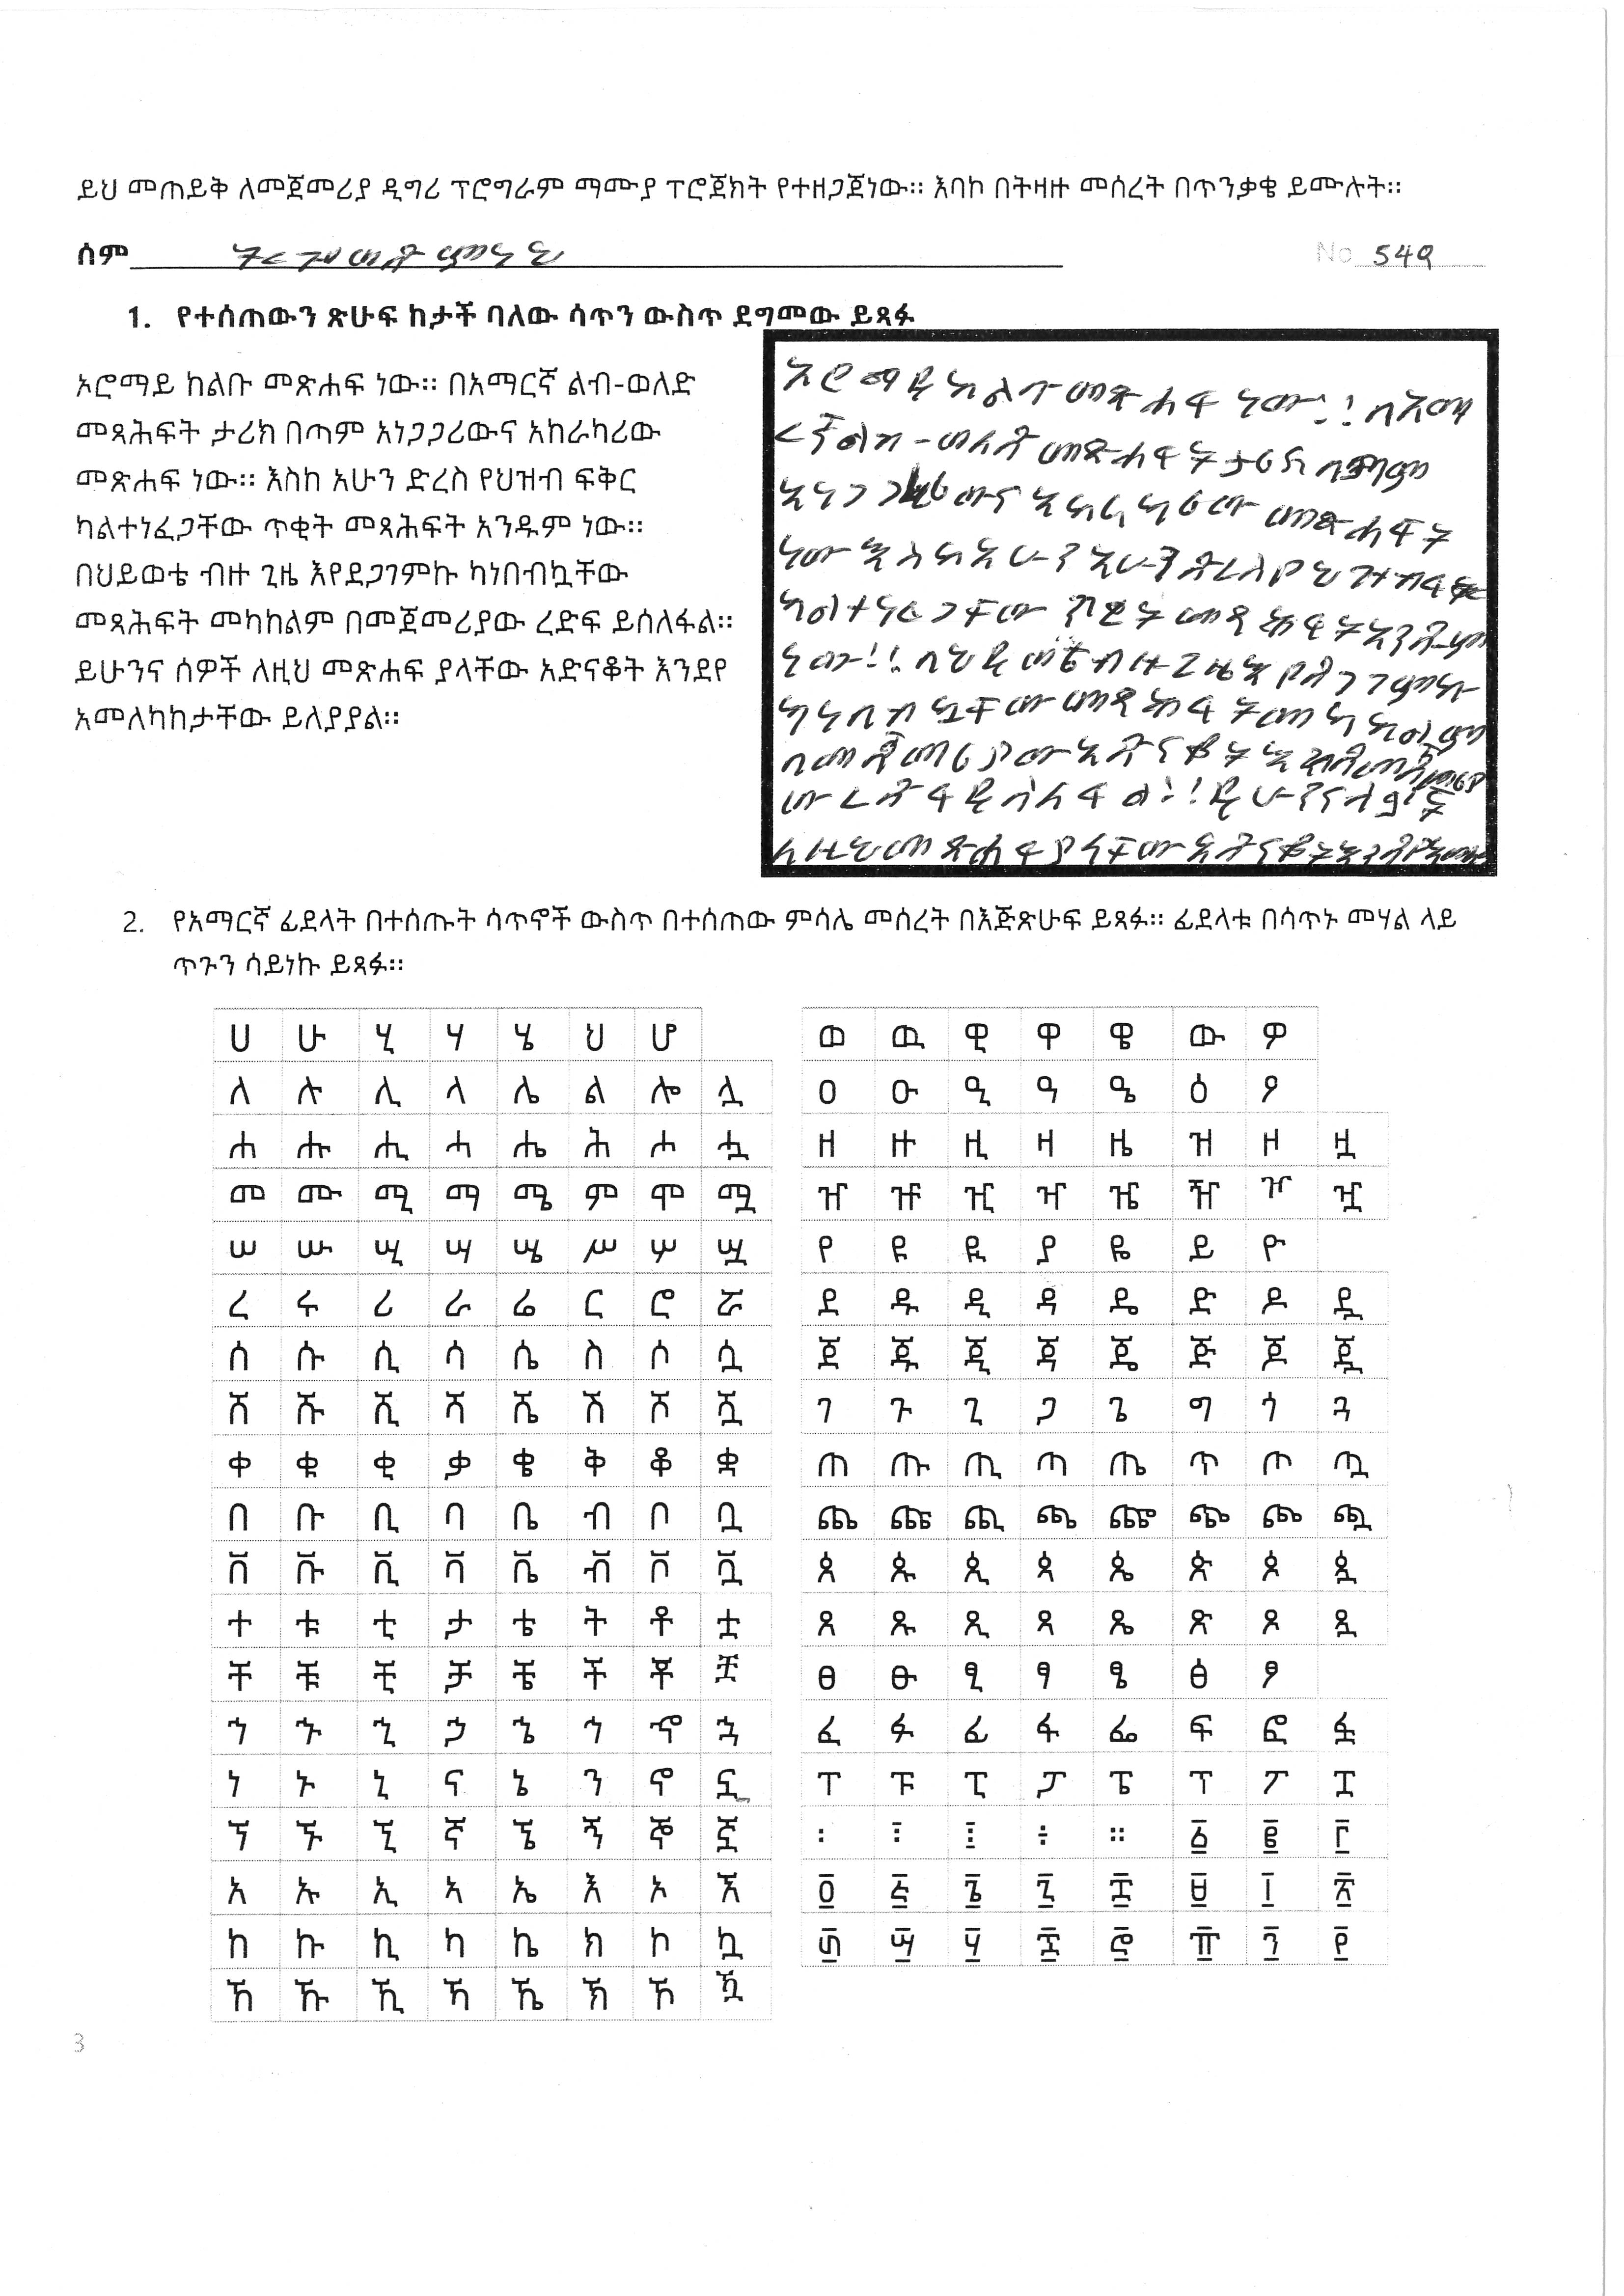 ይህ መጠይቅ ለመጀመሪያ ዲግሪ ፕሮግራም ማሙያ ፕሮጀክት የተዘጋጀነው። እባኮ በትዛዙ መሰረት በጥንቃቄ ይሙሉት።
ስም
No 549
1. የተሰጠውን ጽሁፍ ከታች ባለው ሳጥን ውስጥ ደግመው ይጻፉ
ኦሮማይ ከልቡ መጽሐፍ ነው። በአማርኛ ልብ-ወለድ
መጻሕፍት ታሪክ በጣም አነጋጋሪውና አከራካሪው
መጽሐፍ ነው። እስከ አሁን ድረስ የህዝብ ፍቅር
ካልተነፈጋቸው ጥቂት መጻሕፍት አንዱም ነው።
በህይወቴ ብዙ ጊዜ እየደጋገምኩ ካነበብኳቸው
መጻሕፍት መካከልም በመጀመሪያው ረድፍ ይሰለፋል።
ይሁንና ሰዎች ለዚህ መጽሐፍ ያላቸው አድናቆት እንደየ
አመለካከታቸው ይለያያል።
ኦሮማይ ከልቡ መጽሐፍ ነው።በአማ
ርኛልብ-ወለድ መጽሐፍት ታሪክ በጣም
አነጋጋሪውና አከራካሪው መጽሐፍት
ካልተነፈጋቸው ጥቂት መጻሕፍትአንዱም
ነው።በህይወቴብዙጊዜእየደጋገምኩ
ካነበብኳቸው መጻሕፍት መካከልም
ለዚህመጽሐፍያላቸው
2. የአማርኛ ፊደላት በተሰጡት ሳጥኖች ውስጥ በተሰጠው ምሳሌ መሰረት በእጅጽሁፍ ይጻፉ። ፊደላቱ በሳጥኑ መሃል ላይ
ጥጉን ሳይነኩ ይጻፉ።
ሀ ሁ ሂ ሃ ሄ ህ ሆ
ለ ሉ ሊ ላ ሌ ል ሎ ሏ
ሐ ሑ ሒ ሓ ሔ ሕ ሖ ሗ
መ ሙ ሚ ማ ሜ ም ሞ ሟ
ሠ ሡ ሢ ሣ ሤ ሥ ሦ ሧ
ረ ሩ ሪ ራ ሬ ር ሮ ሯ
ሰ ሱ ሲ ሳ ሴ ስ ሶ ሷ
ሸ ሹ ሺ ሻ ሼ ሽ ሾ ሿ
ቀ ቁ ቂ ቃ ቄ ቅ ቆ ቋ
በ ቡ ቢ ባ ቤ ብ ቦ ቧ
ቨ ቩ ቪ ቫ ቬ ቭ ቮ ቯ
ተ ቱ ቲ ታ ቴ ት ቶ ቷ
ቸ ቹ ቺ ቻ ቼ ች ቾ ቿ
ኀ ኁ ኂ ኃ ኄ ኅ ኆ ኋ
ነ ኑ ኒ ና ኔ ን ኖ ኗ
ኘ ኙ ኚ ኛ ኜ ኝ ኞ ኟ
አ ኡ ኢ ኣ ኤ እ ኦ ኧ
ከ ኩ ኪ ካ ኬ ክ ኮ ኳ
ኸ ኹ ኺ ኻ ኼ ኽ ኾ ዃ
ወ ዉ ዊ ዋ ዌ ው ዎ
ዐ ዑ ዒ ዓ ዔ ዕ ዖ
ዘ ዙ ዚ ዛ ዜ ዝ ዞ ዟ
ዠ ዡ ዢ ዣ ዤ ዥ ዦ ዧ
የ ዩ ዪ ያ ዬ ይ ዮ
ደ ዱ ዲ ዳ ዴ ድ ዶ ዷ
ጀ ጁ ጂ ጃ ጄ ጅ ጆ ጇ
ገ ጉ ጊ ጋ ጌ ግ ጎ ጓ
ጠ ጡ ጢ ጣ ጤ ጥ ጦ ጧ
ጨ ጩ ጪ ጫ ጬ ጭ ጮ ጯ
ጰ ጱ ጲ ጳ ጴ ጵ ጶ ጷ
ጸ ጹ ጺ ጻ ጼ ጽ ጾ ጿ
ፀ ፁ ፂ ፃ ፄ ፅ ፆ
ፈ ፉ ፊ ፋ ፌ ፍ ፎ ፏ
ፐ ፑ ፒ ፓ ፔ ፕ ፖ ፗ
፡ ፣ ፤ ፥ ። ፩ ፪ ፫
፬ ፭ ፮ ፯ ፰ ፱ ፲ ፳
፴ ፵ ፶ ፷ ፸ ፹ ፺ ፻
3